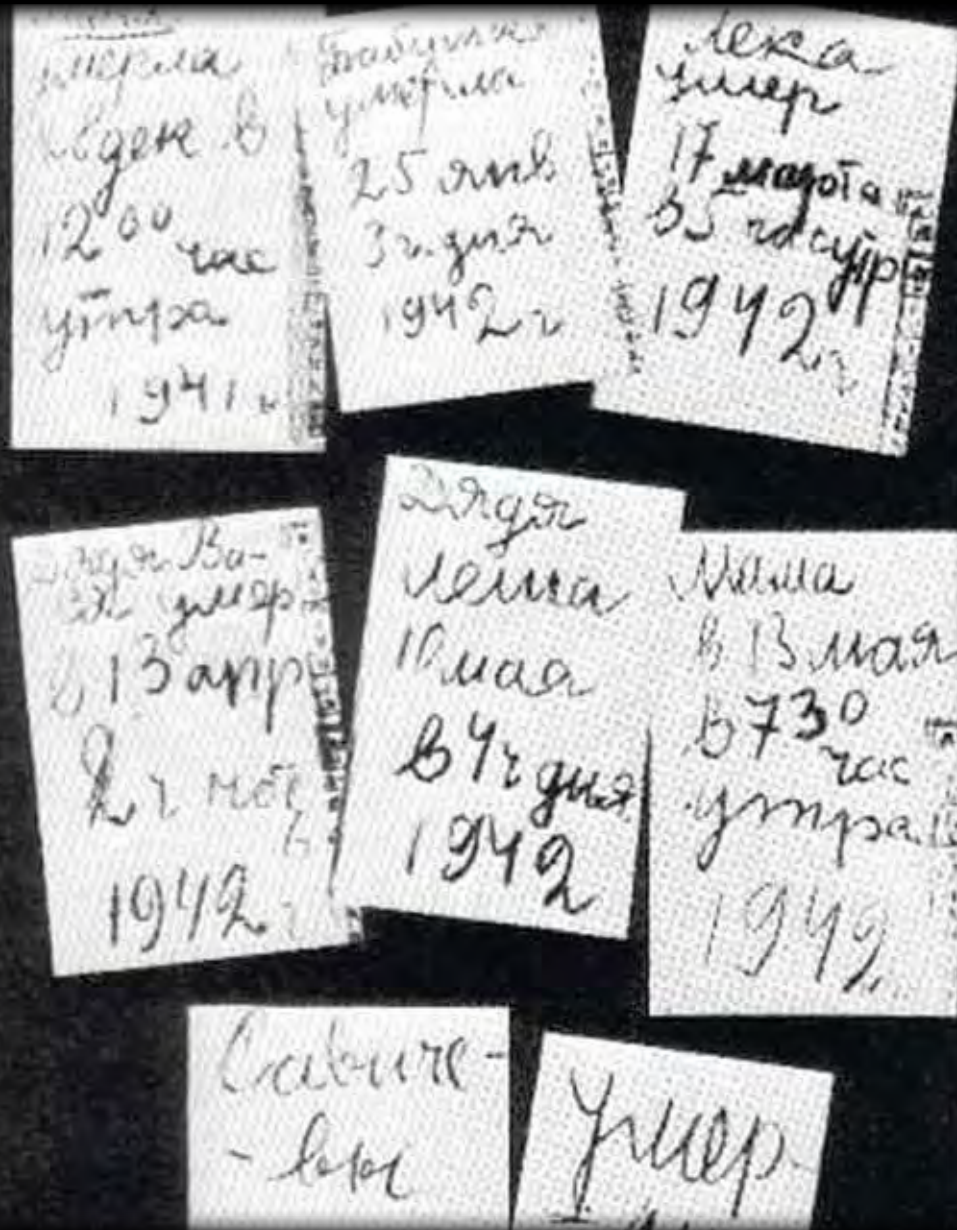 умерла
дек в
12 00 час
утра
1941 г
Бабушка
умерла
25 янв
3 ч. дня
1942 г
Лека
умер
17 марта
в 5 час утр
1942 г
Дядя Ва-
ся умер
в 13 апр
2 ч ночь
1942 г
Дядя
Леша
10 мая
в 4 ч дня
1942
Мама
в 13 мая
в 7 30 час
утра
1942
Савиче-
-вы
Умер-